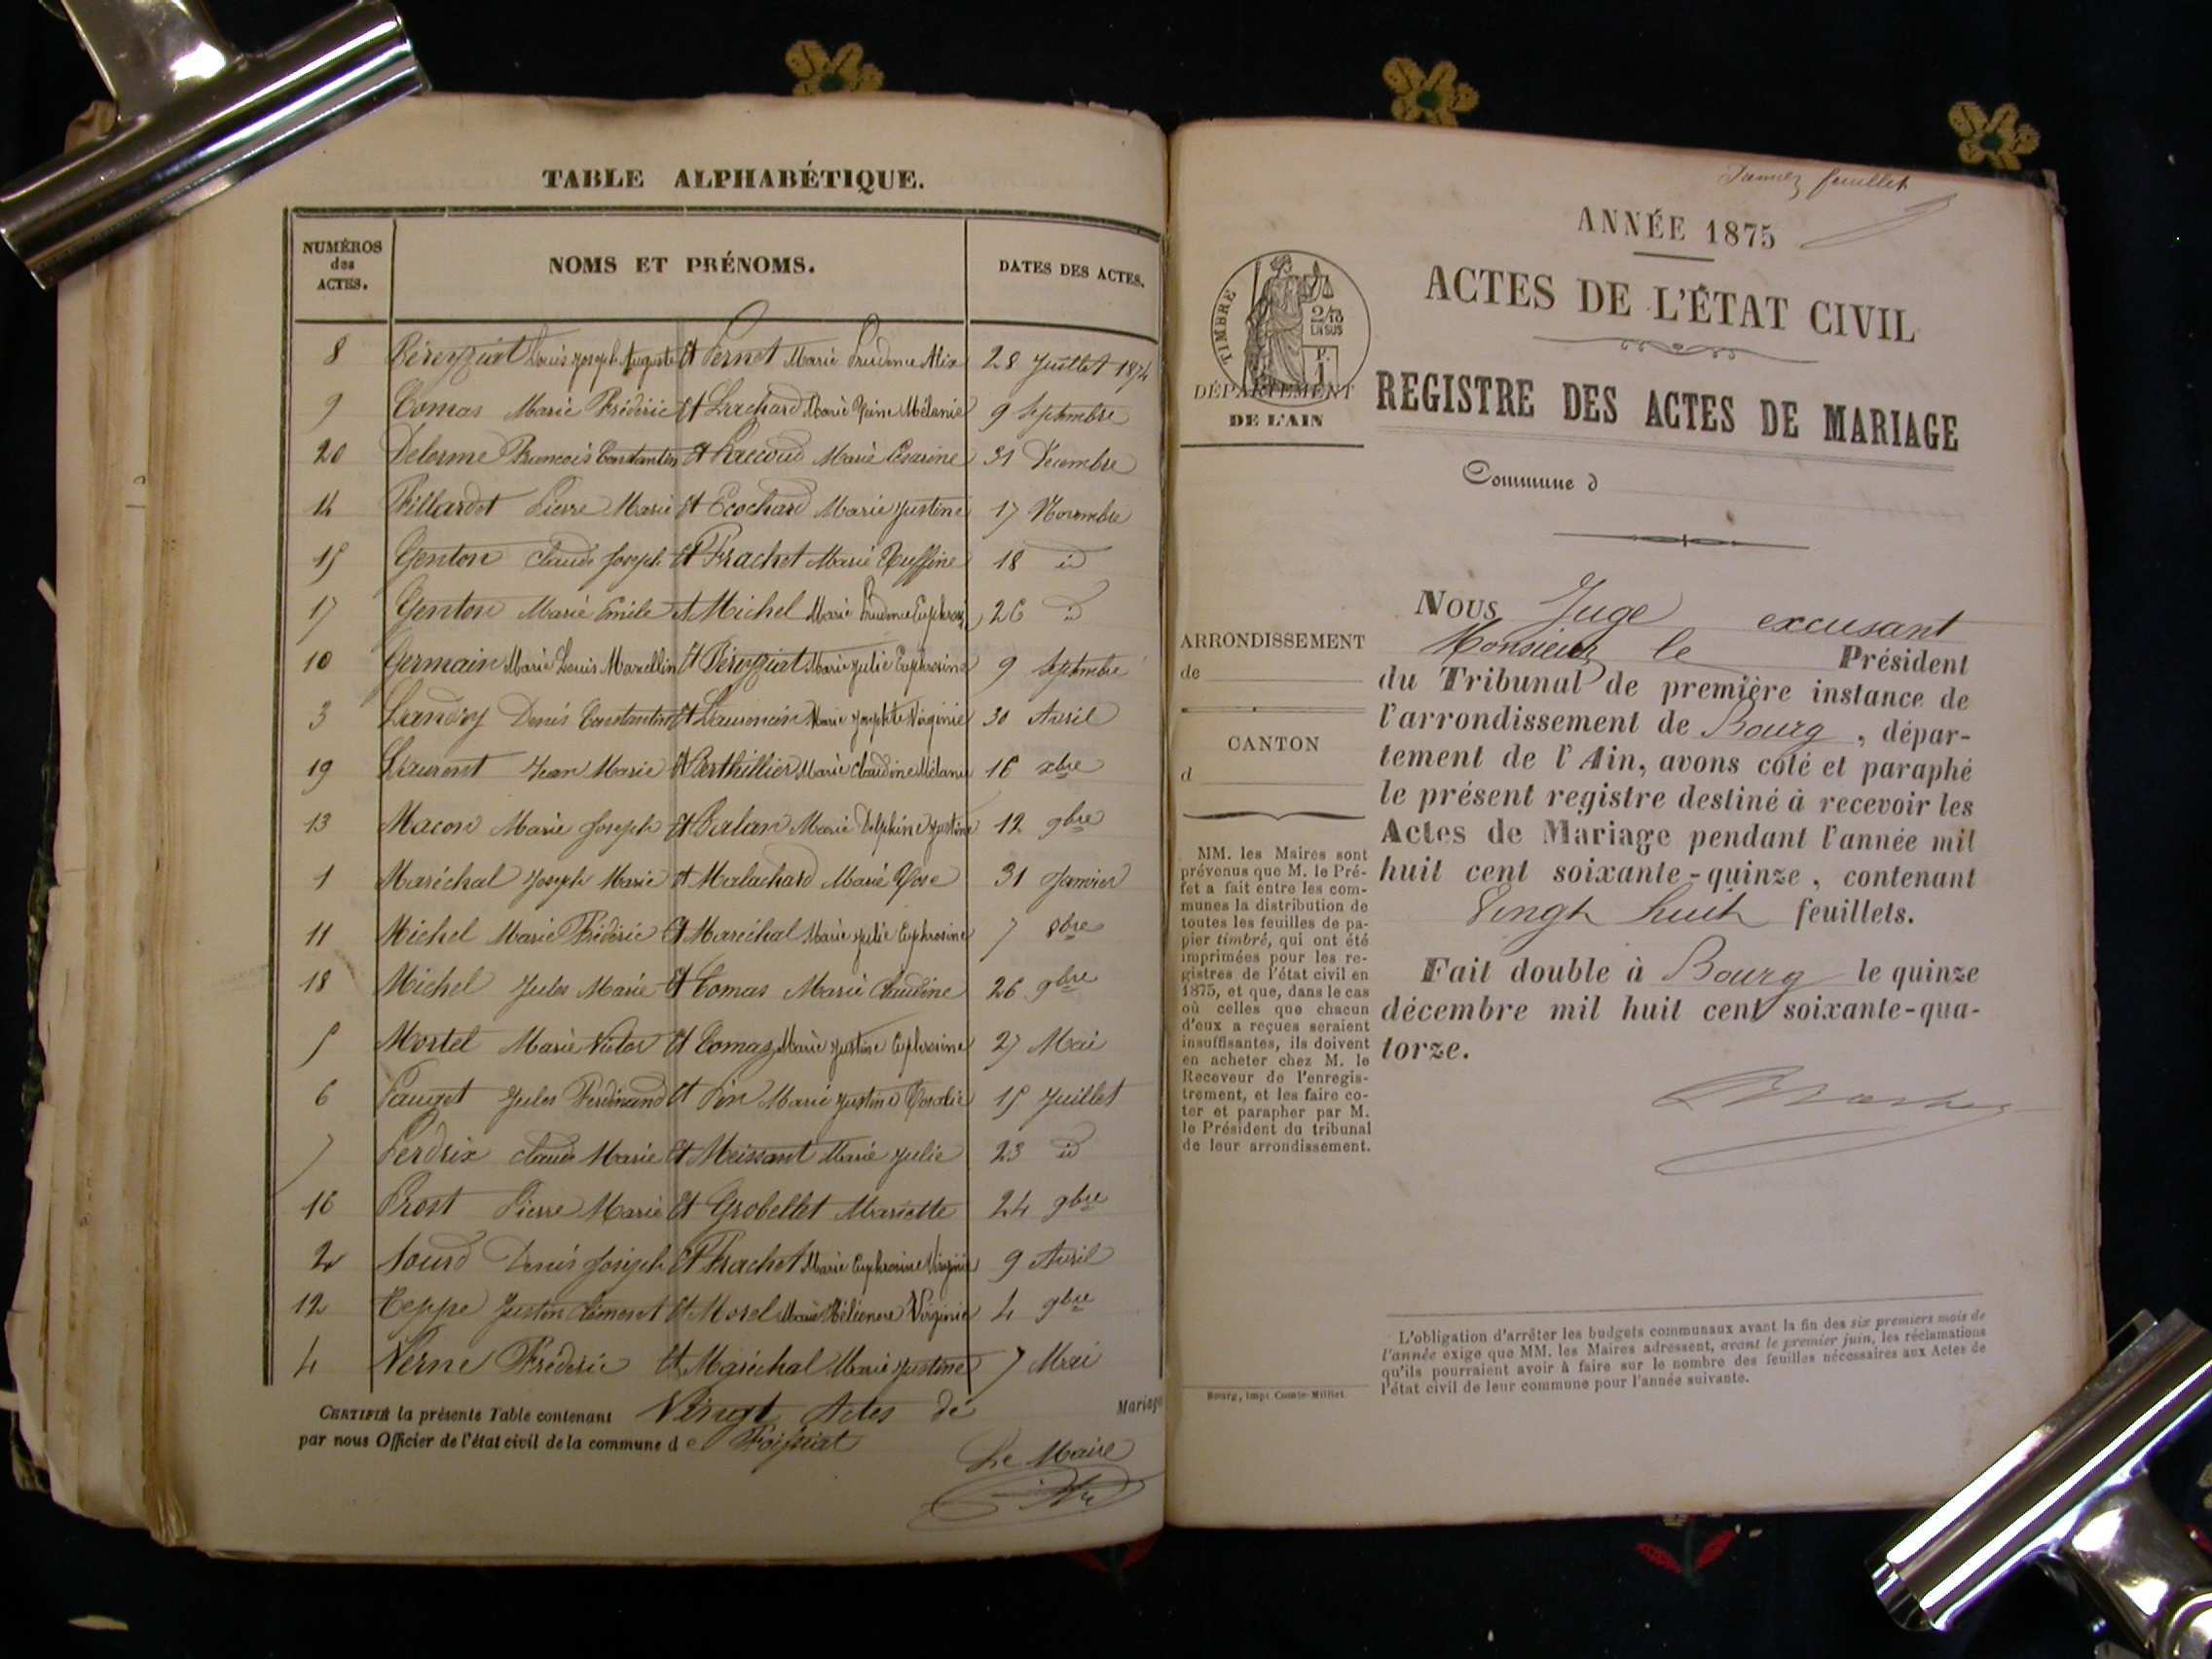 TABLE ALPHABÉTIQUE.
NUMÉROS des ACTES.
NOMS ET PRÉNOMS.
DATES DES ACTES.
8 Béreyziat Louis Joseph Auguste Et Pernet Marie Prudence Alix 28 Juillet 1874
9 Comas Marie Frédéric Et Marie Reine Mélanie 9 Septembre
20 Delorme François Constantin Et Marie Césarine 31 Décembre
14 Fillardet Pierre Marie Et Ecochard Marie Justine 17 Novembre
15 Genton Claude Joseph Et Frachet Marie Ruffine 18 id
17 Genton Marie Emile et Michel Marie Prudence Euphrosi 26 id
10 Germain Marie Louis Marcellin Et Béreyziat Marie Julie Euphrosine 9 Septembre
3 Landry Denis Constantin Et Laurencin Marie Josephte Virginie 30 Avril
19 Laurent Jean Marie Et Berthillier Marie Claudine Mélanie 16 xbre
13 Macon Marie Joseph Et Balan Marie Delphine Justine 12 9bre
1 Maréchal Joseph Marie et Malachard Marie Rose 31 Janvier
11 Michel Marie Frédéric Et Maréchal Marie Julie Euphrosine 7 8bre
18 Michel Jules Marie Et Comas Marie Claudine 26 9bre
5 Mortel Marie Victor Et Comas Marie Justine Euphrosine 27 Mai
6 Pauget Jules Ferdinand Et Pin Marie Justine Rosalie 15 Juillet
7 Perdrix Claude Marie Et Meissant Marie Julie 23 id
16 Prost Pierre Marie Et Grobellet Mariette 24 9bre
2 Sourd Denis Joseph Et Frachet Marie Euphrosine Virginie 9 Avril
12 Teppe Justin Clément Et Morel Marie Héléonore Virginie 4 9bre
4 Verne Frédéric Et Maréchal Marie Justine 7 Mai
CERTIFIÉ la présente Table contenant Vingt Actes de Mariage
par nous Officier de l'état civil de la commune d e Foissiat
Le Maire
feuillet
ANNÉE 1875
ACTES DE L'ÉTAT CIVIL
TIMBRE
2/10
EN SUS
F.
1
DÉPARTEMENT
DE L'AIN
REGISTRE DES ACTES DE MARIAGE
Commune d
ARRONDISSEMENT
de
CANTON
d
MM. les Maires sont
prévenus que M. le Pré-
fet a fait entre les com-
munes la distribution de
toutes les feuilles de pa-
pier timbré, qui ont été
imprimées pour les re-
gistres de l'état civil en
1875, et que, dans le cas
où celles que chacun
d'eux a reçues seraient
insuffisantes, ils doivent
en acheter chez M. le
Receveur de l'enregis-
trement, et les faire co-
ter et parapher par M.
le Président du tribunal
de leur arrondissement.
Nous Juge excusant
Monsieur le Président
du Tribunal de première instance de
l'arrondissement de Bourg, dépar-
tement de l'Ain, avons coté et paraphé
le présent registre destiné à recevoir les
Actes de Mariage pendant l'année mil
huit cent soixante-quinze, contenant
Vingt huit feuillets.
Fait double à Bourg le quinze
décembre mil huit cent soixante-qua-
torze.
L'obligation d'arrêter les budgets communaux avant la fin des six premiers mois de
l'année exige que MM. les Maires adressent, avant le premier juin, les réclamations
qu'ils pourraient avoir à faire sur le nombre des feuilles nécessaires aux Actes de
l'état civil de leur commune pour l'année suivante.
Bourg, impr. Comte-Milliet.